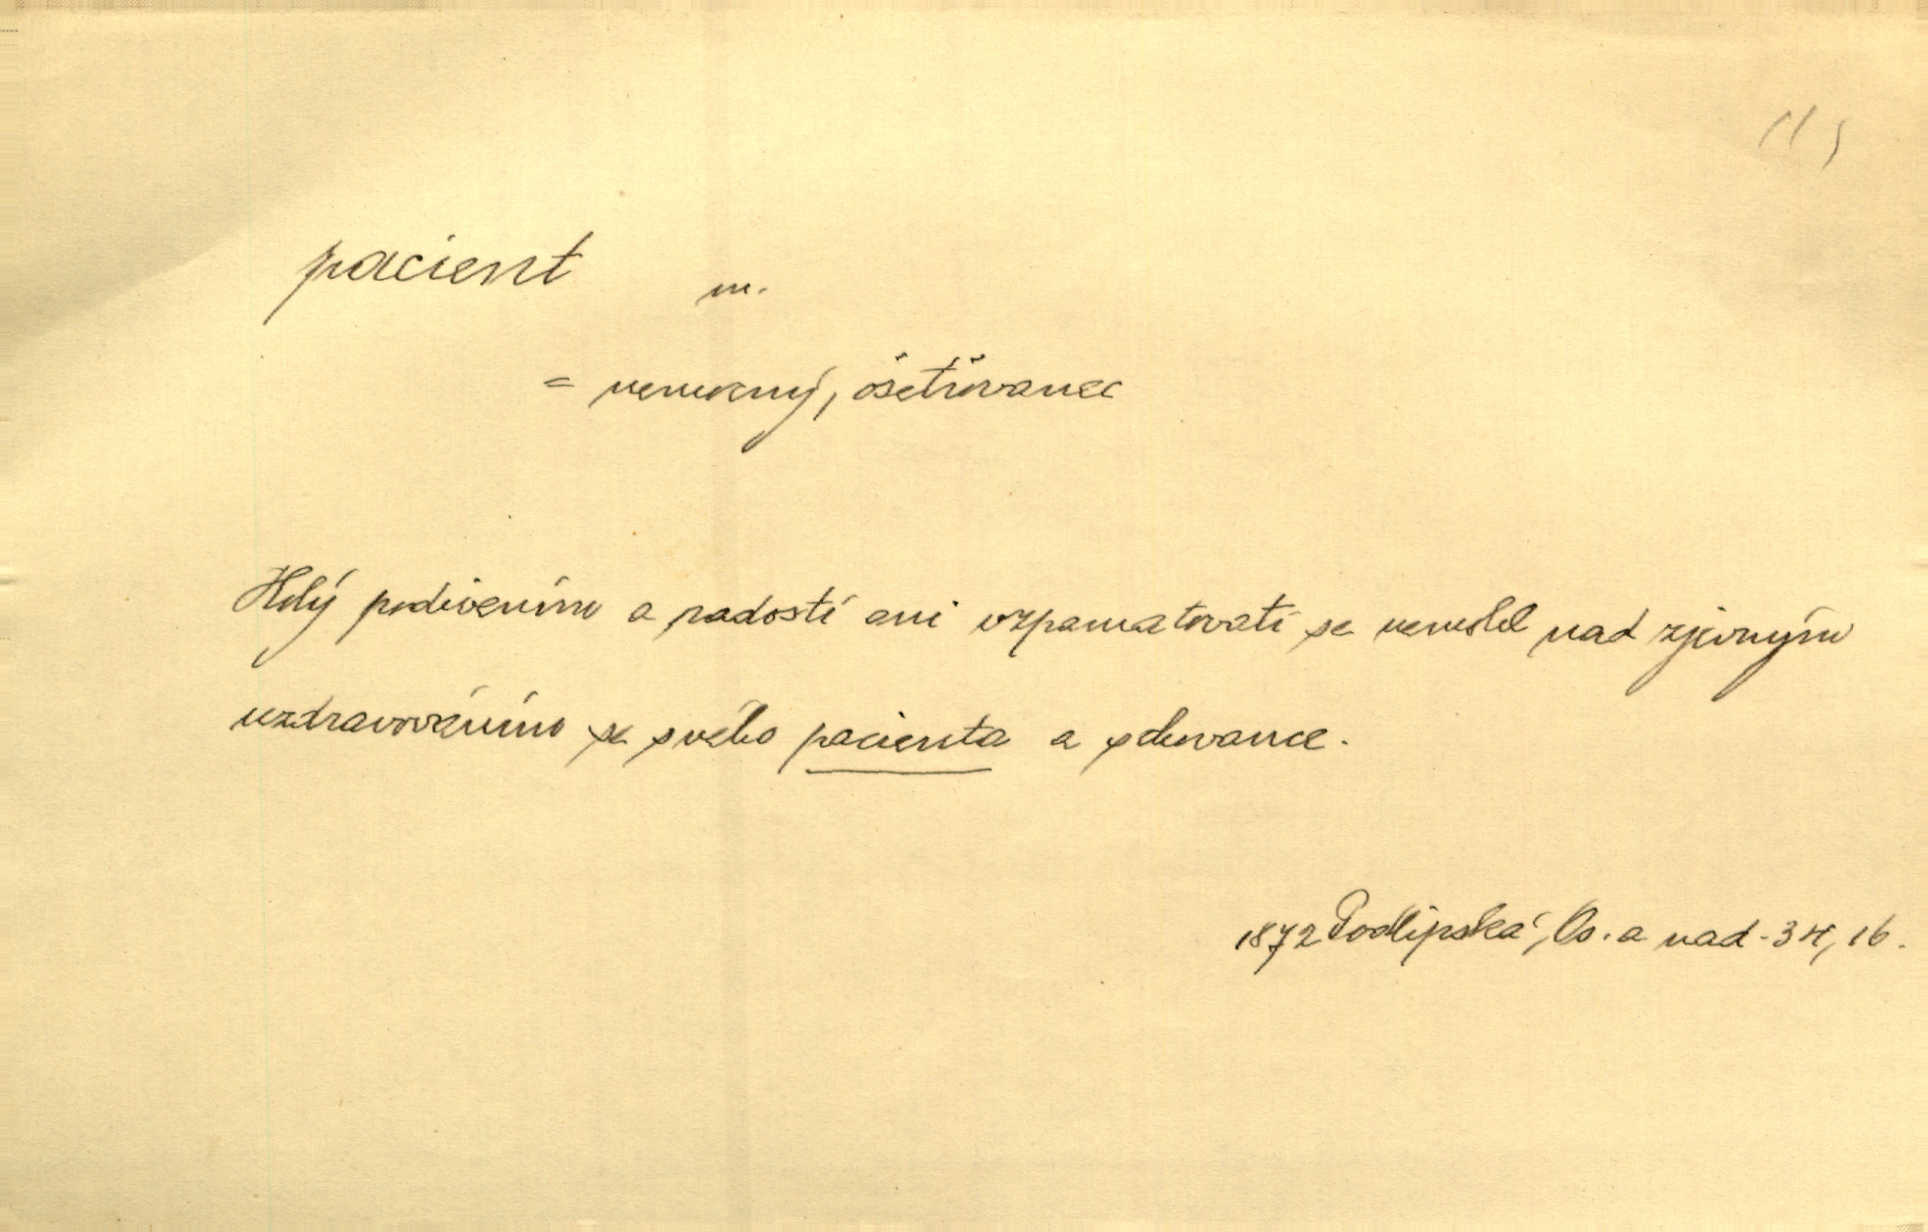 pacient m.
= nemocný, ošetřovanec
Holý podivením a radostí ani vzpamatovati se nemohl nad zjevným
uzdravováním se svého pacienta a schovance.
1872 Podlipská, Os. a nad. 34, 16.